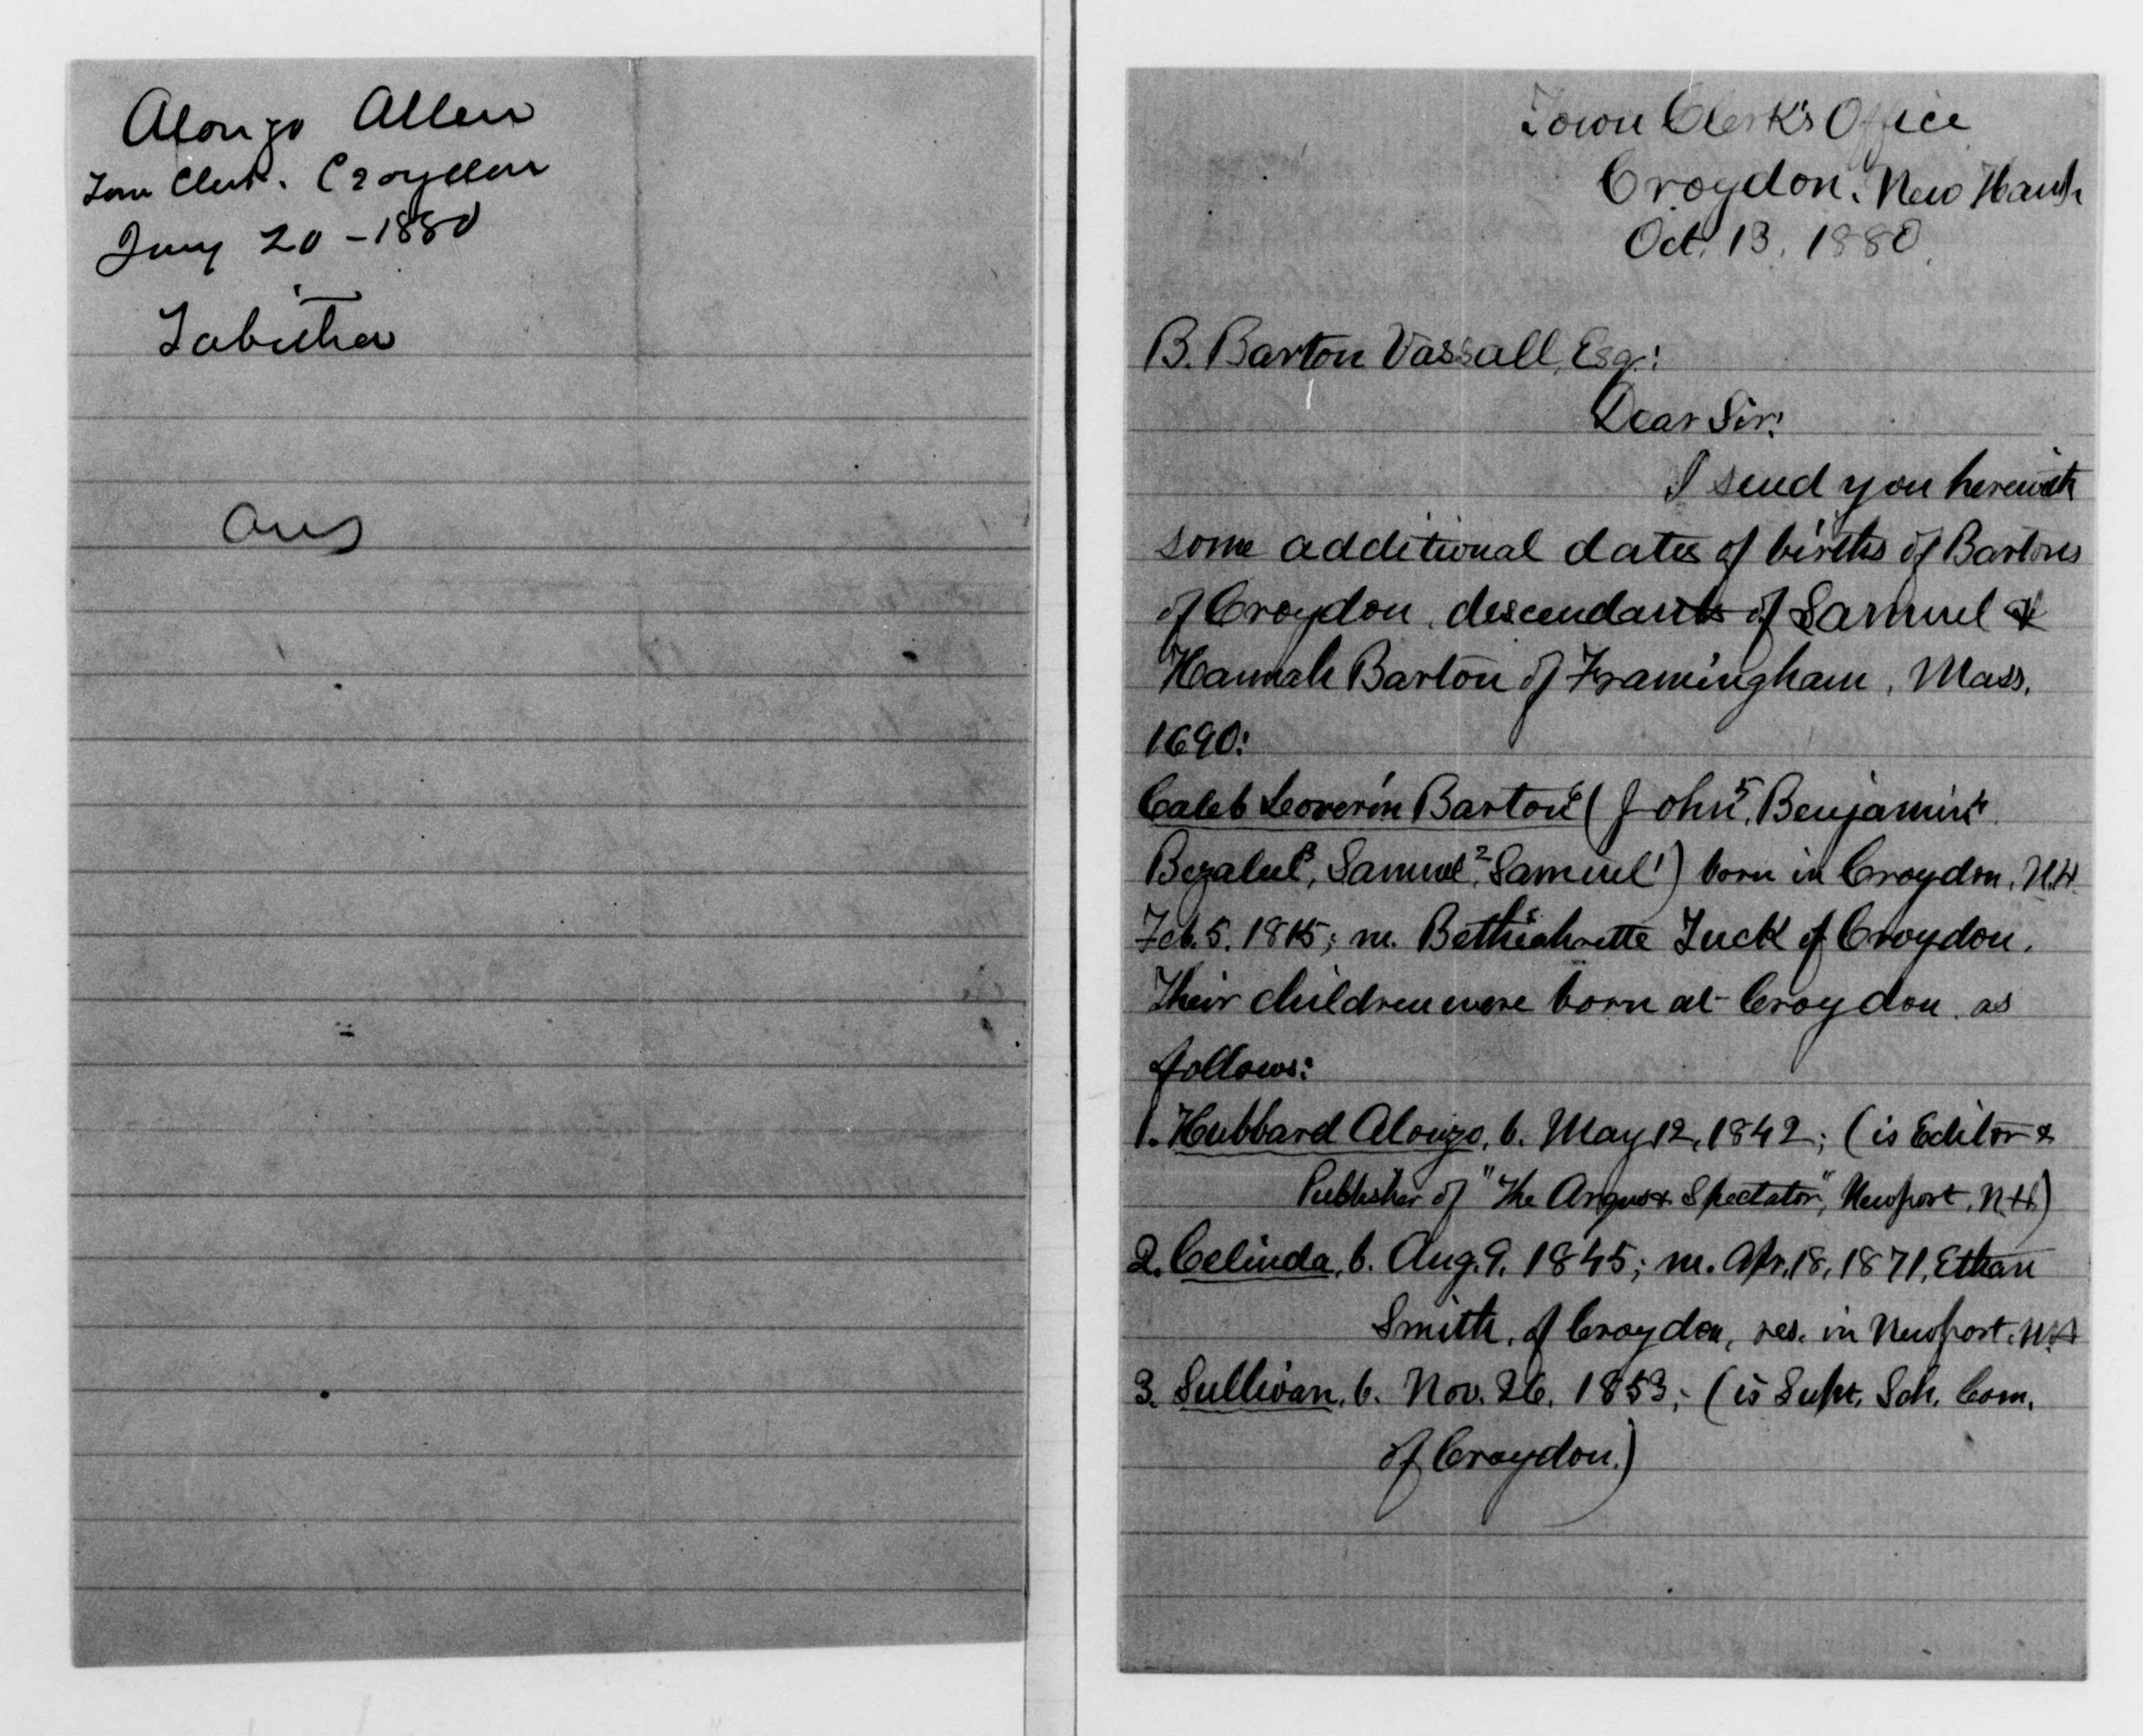 Alonzo Allen
Town Clerk. Croydon
Jany 20 - 1880
Tabitha
Ans
Town Clerk's Office
Croydon, New Hamp
Oct. 13, 1880.
B. Barton Vassall, Esq.:
Dear Sir:
I send you herewith
some additional dates of births of Bartons
of Croydon, descendants of Samuel &
Hannah Barton of Framingham, Mass,
1690:
Caleb Loverin Barton6 (John5, Benjamin4,
Bezaleel3, Samuel2, Samuel1) born in Croydon, N.H.
Feb. 5, 1815; m. Bethiahrette Tuck of Croydon.
Their children were born at Croydon, as
follows:
1. Hubbard Alonzo, b. May 12, 1842; (is Editor &
Publisher of "The Argus & Spectator", Newport, N.H.)
2. Celinda, b. Aug. 9, 1845; m. Apr. 18, 1871, Ethan
Smith, of Croydon, res. in Newport, N.H
3. Sullivan, b. Nov. 26, 1853; (is Supt. Sch. Com.
of Croydon.)